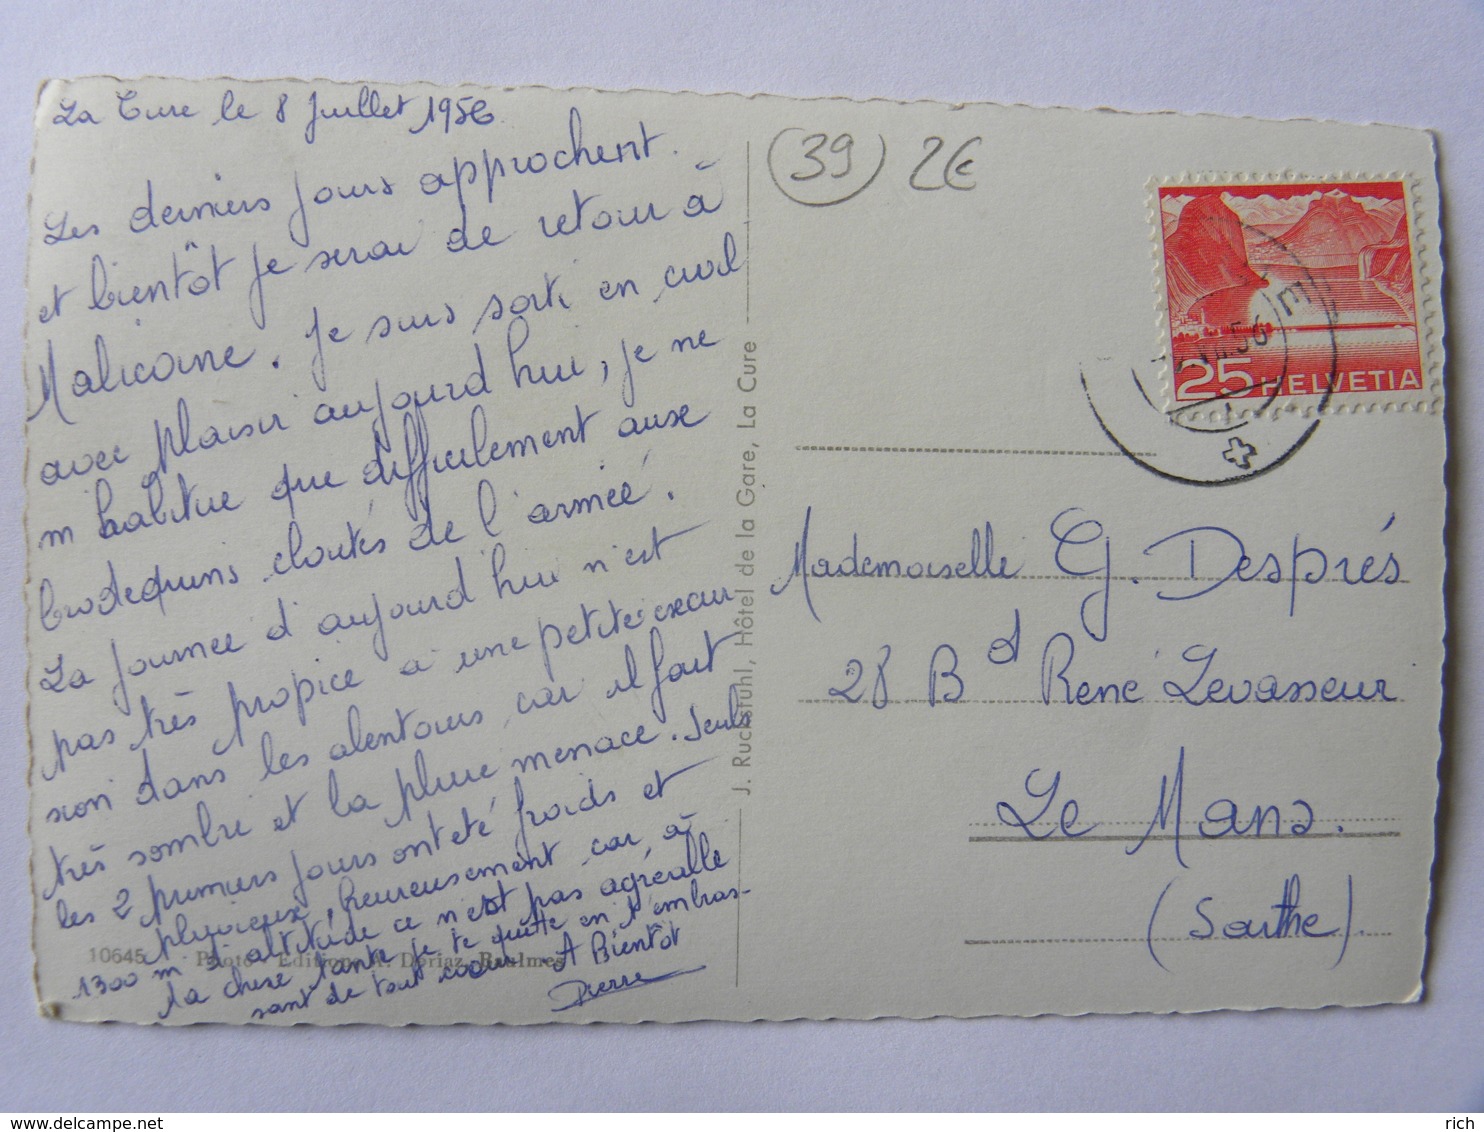 La Cure le 8 Juillet 1956
Les derniers jours approchent.
et bientôt je serai de retour à
Malicorne. Je suis sorti en civil
avec plaisir aujourd'hui, je ne
m'habitue que difficilement aux
brodequins cloutés de l'armée.
La journée d'aujourd'hui n'est
pas très propice à une petite excur
sion dans les alentours car il fait
très sombre et la pluie menace. Seuls
les 2 premiers jours ont été froids et
pluvieux, heureusement car, à
1300 m d'altitude ce n'est pas agréable
la chère tante je te quitte en t'embras-
sant de tout coeur. A Bientôt
Pierre
10645 Photo Editions A. Doriaz, Baulmes
J. Ruckstuhl, Hôtel de la Gare, La Cure
39 2€
25 HELVETIA
56
Mademoiselle G. Després
28 Bd René Levasseur
Le Mans.
(Sarthe).
www.delcampe.net
rich